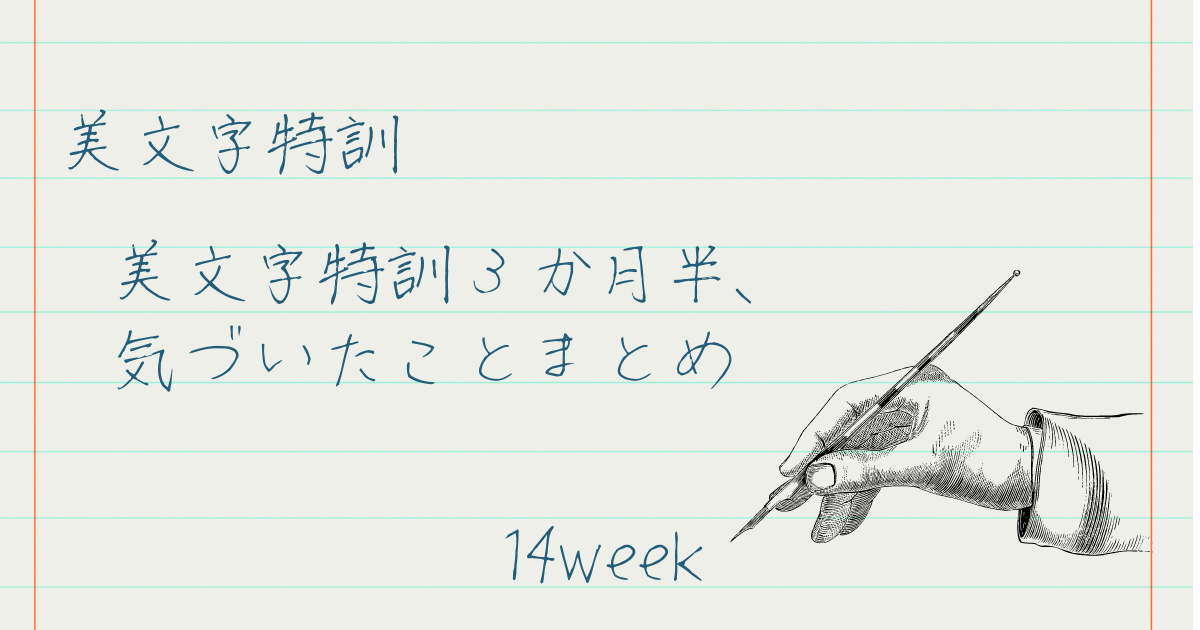 美文字特訓
美文字特訓３か月半、
気づいたことまとめ
14week